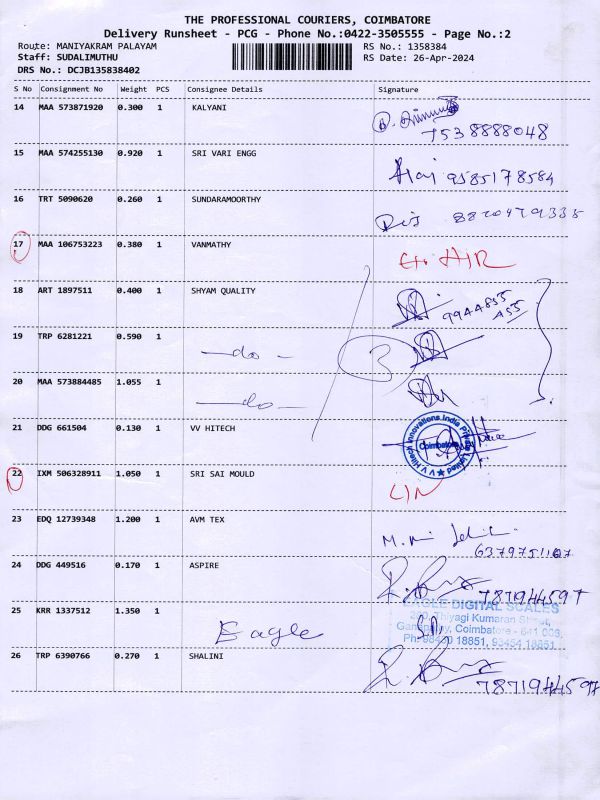 THE PROFESSIONAL COURIERS, COIMBATORE
Delivery Runsheet - PCG - Phone No.:0422-3505555 - Page No.:2
Route: MANIYAKRAM PALAYAM RS No.: 1358384
Staff: SUDALIMUTHU RS Date: 26-Apr-2024
DRS No.: DCJB135838402
S No Consignment No Weight PCS Consignee Details Signature
14 MAA 573871920 0.300 1 KALYANI
7538888048
15 MAA 574255130 0.920 1 SRI VARI ENGG
9585178584
16 TRT 5090620 0.260 1 SUNDARAMOORTHY
17 MAA 106753223 0.380 1 VANMATHY
18 ART 1897511 0.400 1 SHYAM QUALITY
9944855
455
19 TRP 6281221 0.590 1 —do—
3
20 MAA 573884485 1.055 1 —do—
21 DDG 661504 0.130 1 VV HITECH
V V Hitech Innovations India Private Limited
Coimbatore
22 IXM 506328911 1.050 1 SRI SAI MOULD
23 EDQ 12739348 1.200 1 AVM TEX
24 DDG 449516 0.170 1 ASPIRE
7871944597
25 KRR 1337512 1.350 1 Eagle
EAGLE DIGITAL SCALES
Thiyagi Kumaran Street,
Coimbatore - 641 006,
18851, 93454 18851
26 TRP 6390766 0.270 1 SHALINI
7871944597